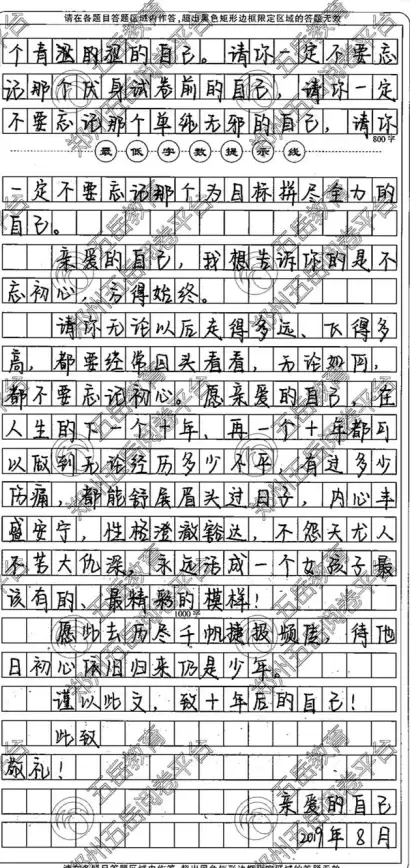 请在各题目答题区域内作答,超出黑色矩形边框限定区域的答题无效
个青涩的涩的自己。请你一定不要忘
记那个伏身试卷前的自己，请你一定
不要忘记那个单纯无邪的自己，请你
800字
最低字数提示线
一定不要忘记那个为目标拼尽全力的
自己。
亲爱的自己，我想告诉你的是不
忘初心，方得始终。
请你无论以后走得多远、飞得多
高，都要经常回头看看，无论如何，
都不要忘记初心。愿亲爱的自己，在
人生的下一个十年、再一个十年都可
以做到无论经历多少不平，有过多少
伤痛，都能舒展眉头过日子，内心丰
盛安宁，性格澄澈豁达，不怨天尤人
不苦大仇深，永远活成一个女孩子最
该有的、最精彩的模样！
1000字
愿此去历尽千帆捷报频传，待他
日初心依旧归来仍是少年。
谨以此文，致十年后的自己！
此致
敬礼！
亲爱的自己
2019年8月
郑州五岳教育
五岳阅卷平台